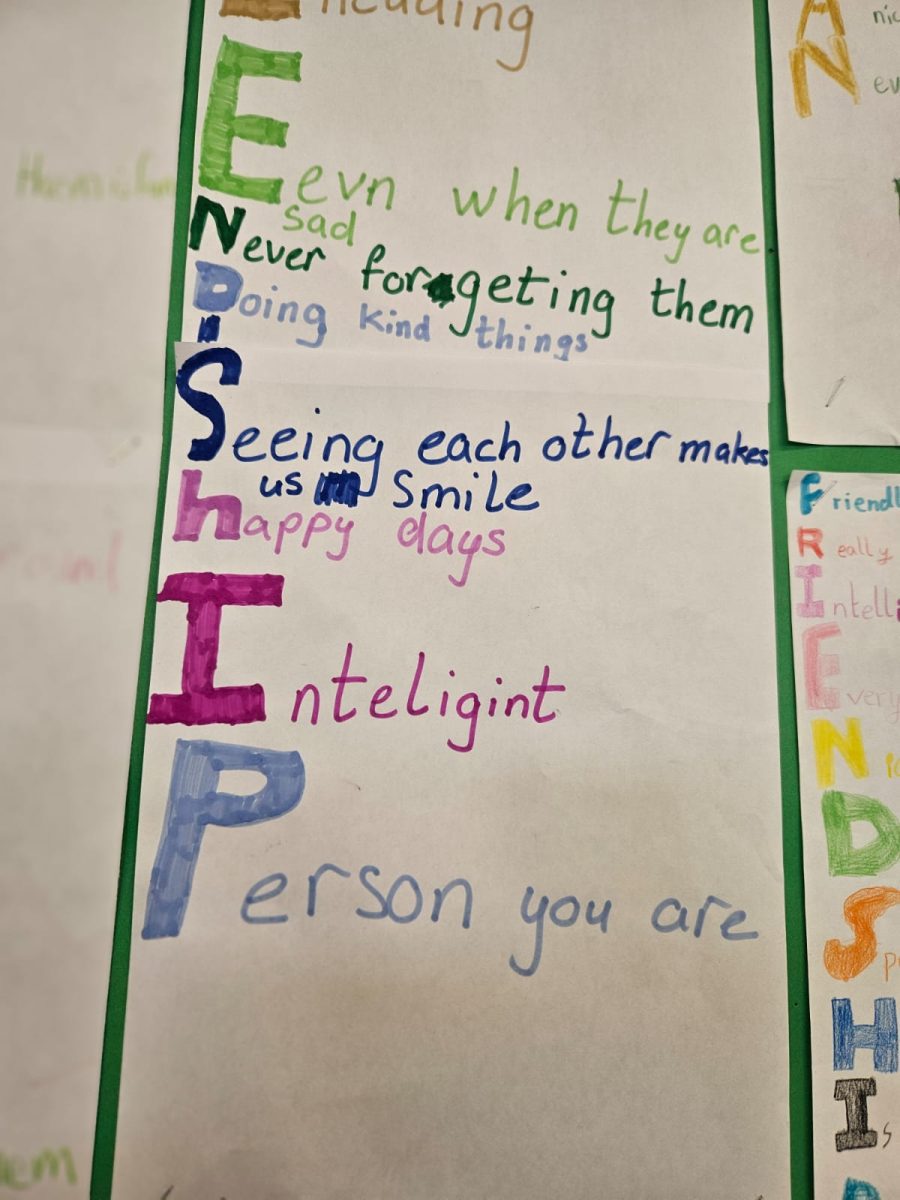 E evn when they are
sad
Never forgeting them
Doing kind things
Seeing each other makes
us smile
happy days
Inteligint
Person you are
A
N
Friendl
Really
Intelli
Every
N
D
S
H
Is
em